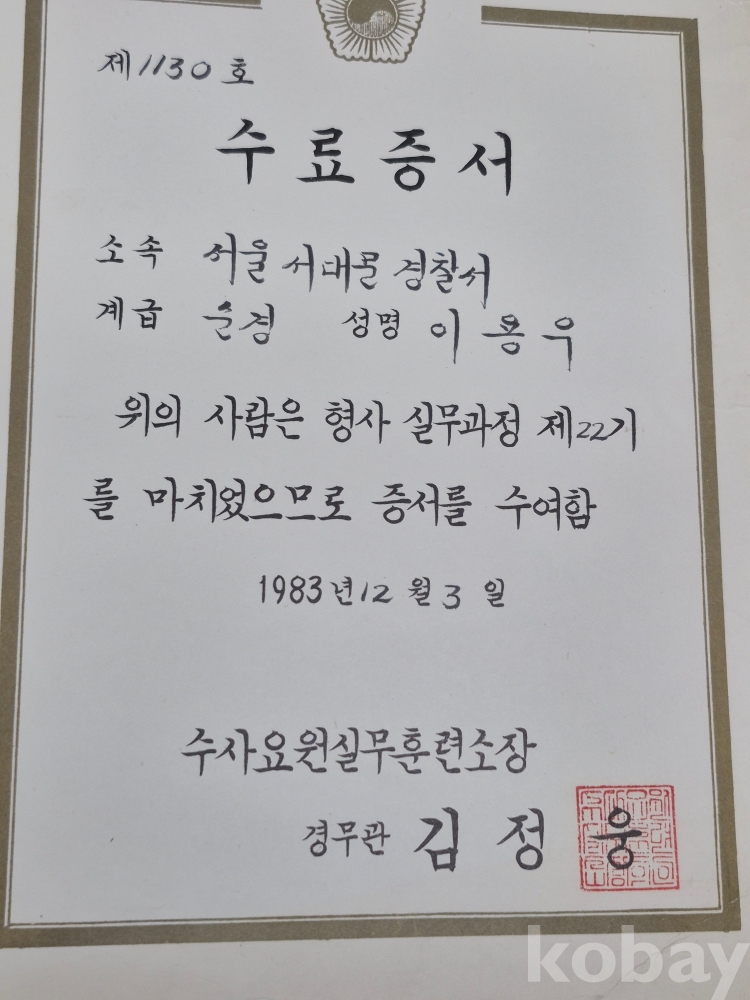 제1130호
수료증서
소속 서울 서대문 경찰서
계급 순경 성명 이용우
위의 사람은 형사 실무과정 제22기
를 마치었으므로 증서를 수여함
1983년 12월 3일
수사요원실무훈련소장
경무관 김정웅
kobay